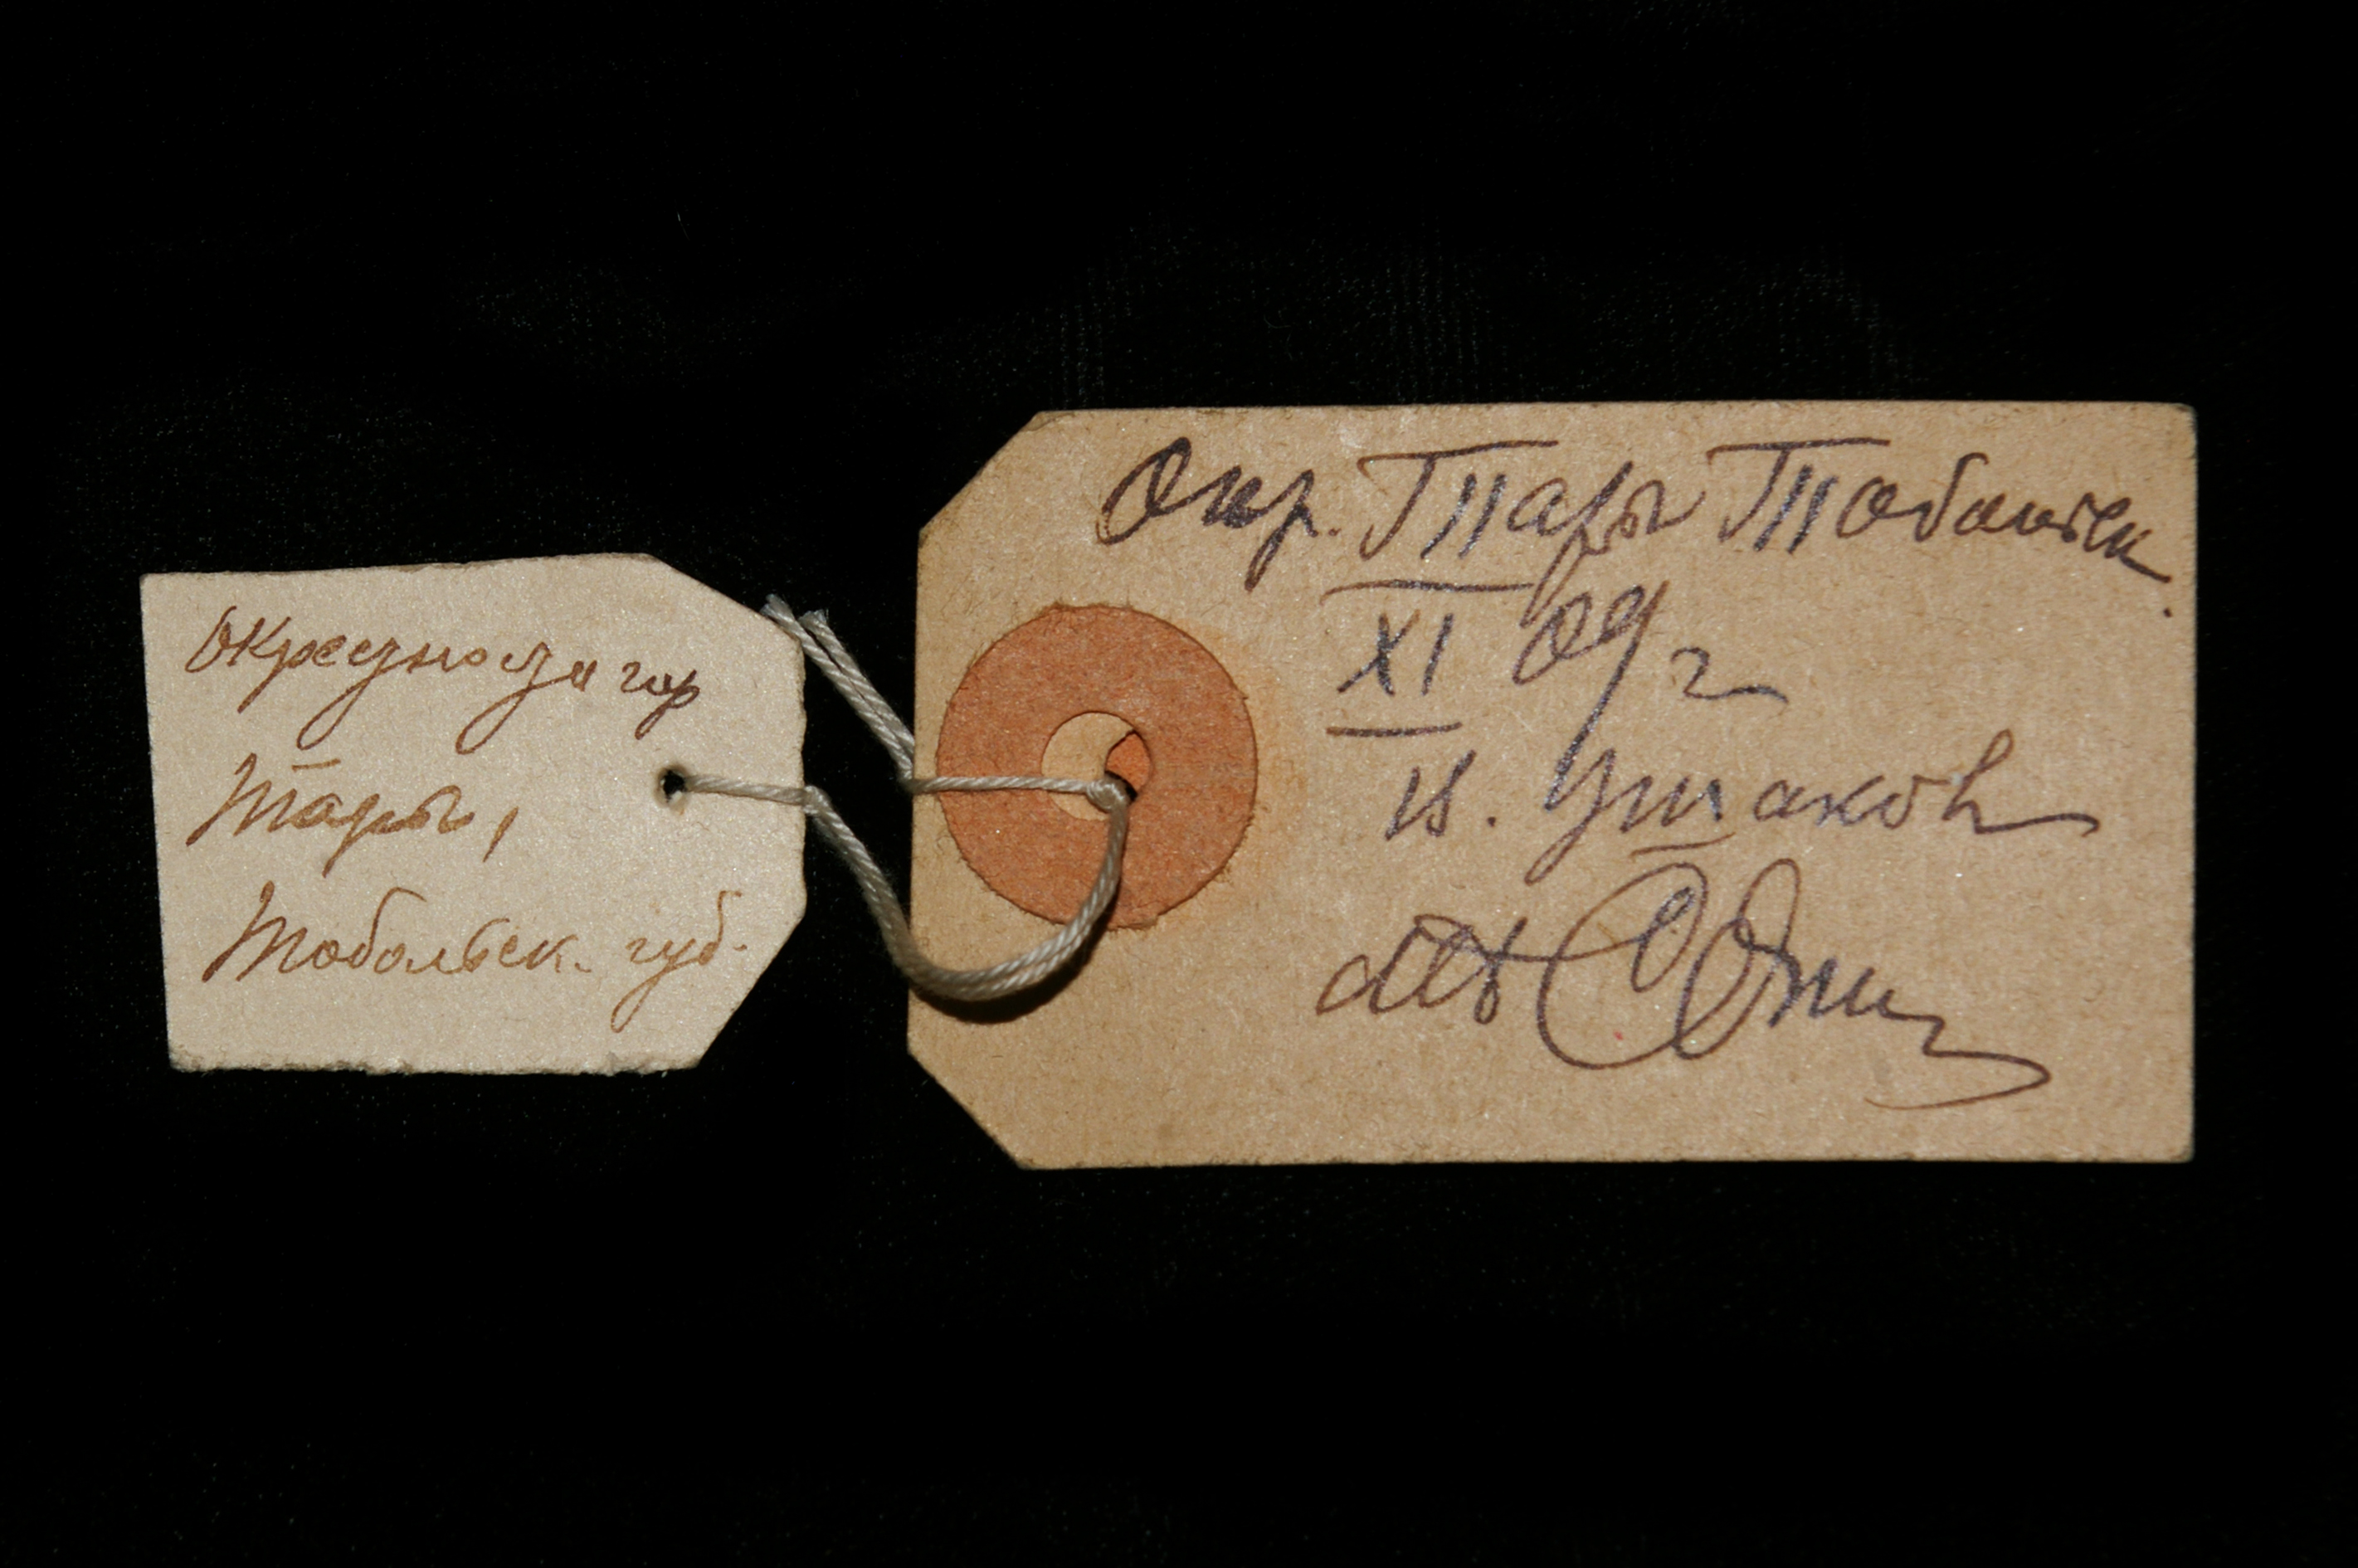 Окрестности гор
Тары,
Тобольск. губ.
Окр. Тары Тобольск.
XI 09 г
В. Ушаков